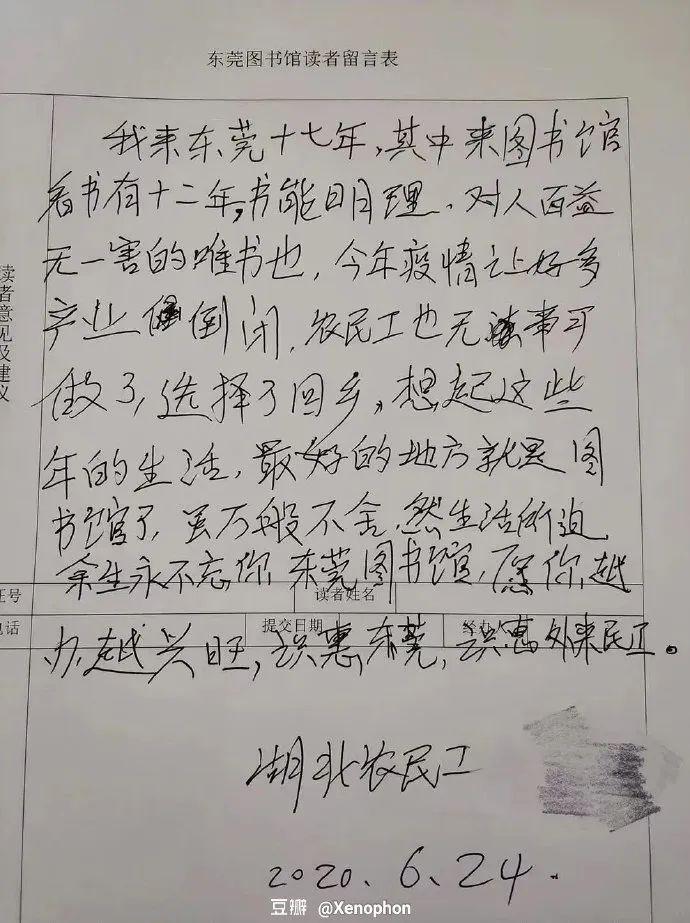 东莞图书馆读者留言表
读者意见及建议
我来东莞十七年，其中来图书馆
看书有十二年，书能明理，对人百益
无一害的唯书也，今年疫情让好多
产业倒闭，农民工也无事可
做了，选择了回乡，想起这些
年的生活，最好的地方就是图
书馆了，虽万般不舍，然生活所迫
余生永不忘你，东莞图书馆，愿你越
证号
读者姓名
电话
提交日期
经办人
办越兴旺，识惠东莞，识惠外来民工。
湖北农民工
2020.6.24.
豆瓣 @Xenophon